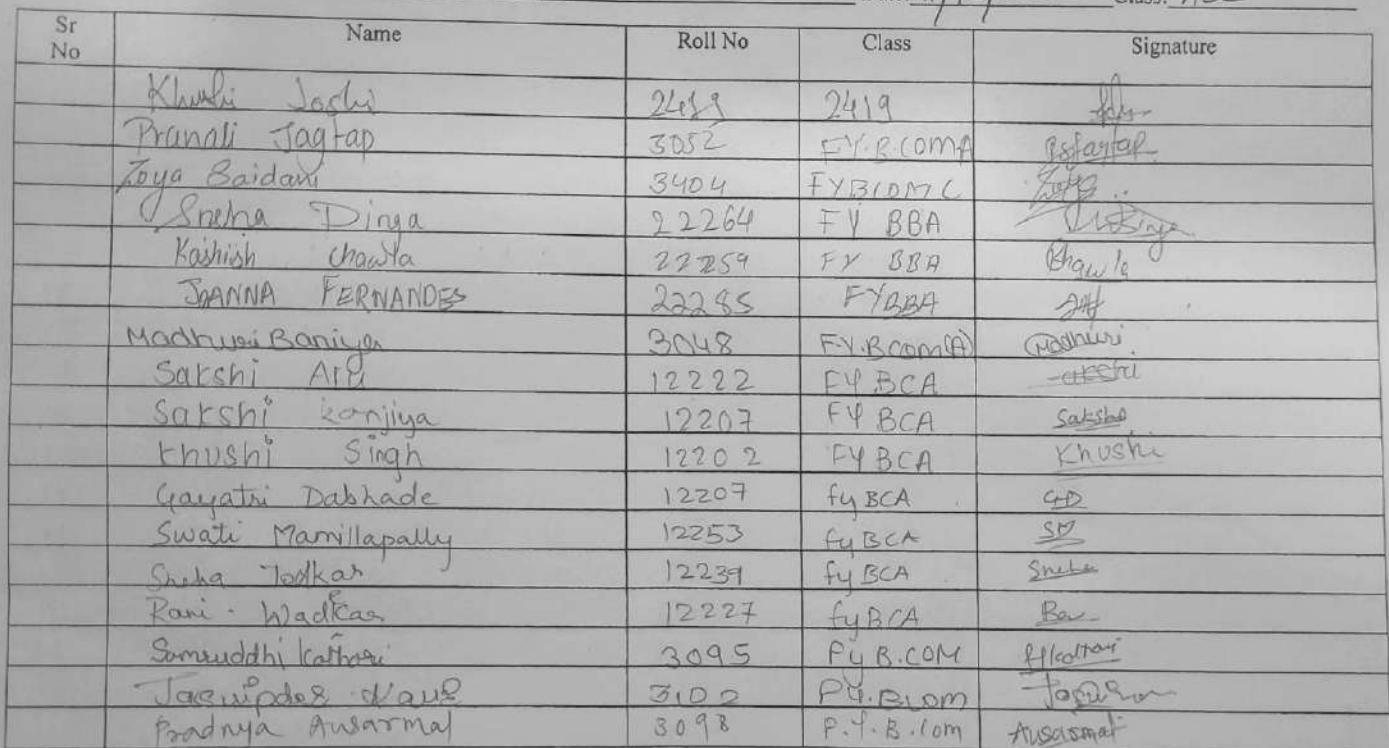 Class:
Sr No Name Roll No Class Signature
Khushi Joshi 2419 2419
Pranali Jagtap 3052 FY.B.COMA
Zoya Baidani 3404 FYBCOM C Zoya
Sneha Dinga 22264 FY BBA
Kashish Chawla 22259 FY BBA Chawla
JOANNA FERNANDES 22285 FYBBA
Madhuri Baniya 3048 FY.BCom(A) Madhuri
Sakshi 12222 FY BCA
Sakshi Kanjiya 12207 FY BCA Sakshi
Khushi Singh 12202 FY BCA Khushi
Gayatri Dabhade 12207 fy BCA GD
Swati Mamillapally 12253 fy BCA SM
Sneha Todkar 12239 fy BCA Sneha
Rani. Wadkar 12227 fy BCA
Samruddhi Kothari 3095 FY B.COM
Jasvinder Kaur 3102 FY.B.com
Pradnya Ausarmal 3098 F.Y.B.Com Ausarmal